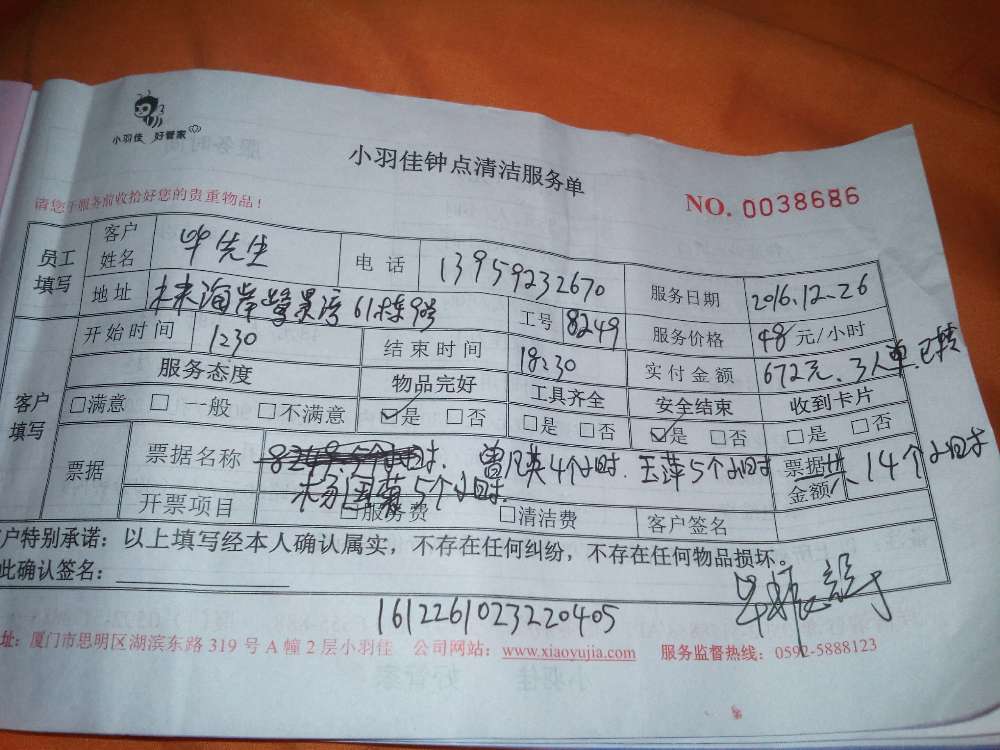 小羽佳 好管家
小羽佳钟点清洁服务单
NO. 0038686
请您于服务前收拾好您的贵重物品！
员工填写 客户姓名 毕先生 电话 13959232670 服务日期 2016.12.26
地址 未来海岸 61栋9号 工号 8249 服务价格 48元/小时
客户填写 开始时间 1230 结束时间 18:30 实付金额 672元.3人单.已转
服务态度 物品完好 工具齐全 安全结束 收到卡片
□满意 □一般 □不满意 ☑是 □否 □是 □否 ☑是 □否 □是 □否
票据 票据名称 曾凡英4个小时. 王萍5个小时 票据金额 共14个小时
5个小时.
开票项目 □服务费 □清洁费 客户签名
客户特别承诺：以上填写经本人确认属实，不存在任何纠纷，不存在任何物品损坏。
此确认签名：
1612261023220405
址：厦门市思明区湖滨东路 319 号 A 幢 2 层小羽佳 公司网站：www.xiaoyujia.com 服务监督热线：0592-5888123